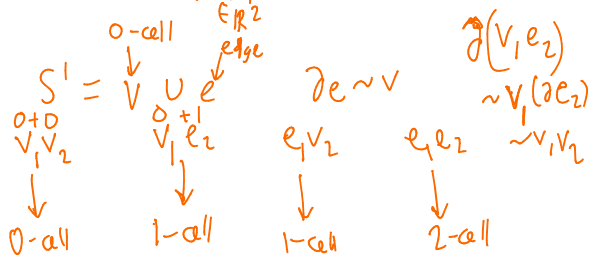 ∈ℝ2
0-cell edge
S¹ = V ∪ e ∂e ~ V
∂(V₁e₂)
~ V₁(∂e₂)
~ V₁V₂
0+0 0+1
V₁V₂ V₁e₂ e₁V₂ e₁e₂
0-cell 1-cell 1-cell 2-cell